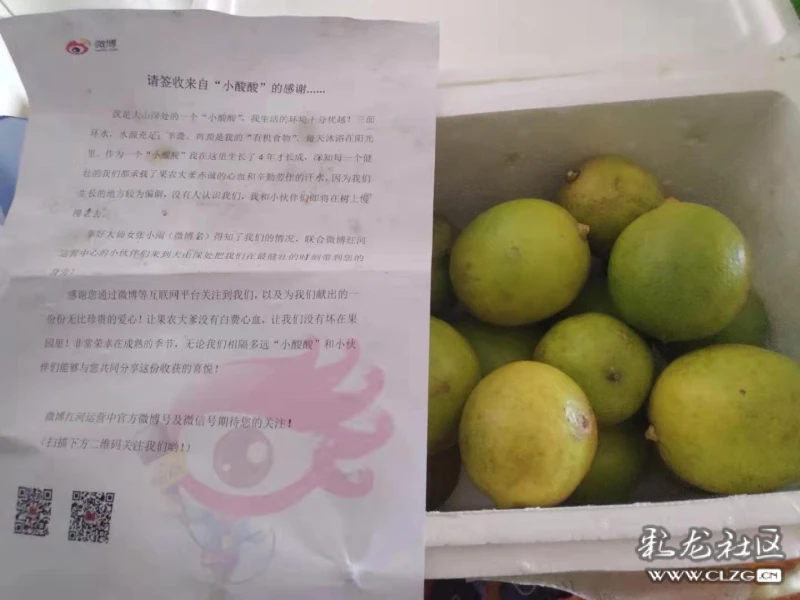 微博
请签收来自“小酸酸”的感谢......
我是大山深处的一个“小酸酸”，我生活的环境十分优越！三面
环水，水源充足；羊粪、鸡粪是我的“有机食物”，每天沐浴在阳光
里。作为一个“小酸酸”我在这里生长了4年才长成，深知每一个健
壮的我们都承载了果农大爹赤诚的心血和辛勤劳作的汗水，因为我们
生长的地方较为偏僻，没有人认识我们，我和小伙伴们即将在树上慢
慢老去。
幸好大仙女张小雨（微博名）得知了我们的情况，联合微博红河
运营中心的小伙伴们来到大山深处把我们在最健壮的时刻带到您的
身旁！
感谢您通过微博等互联网平台关注到我们，以及为我们献出的一
份份无比珍贵的爱心！让果农大爹没有白费心血，让我们没有坏在果
园里！非常荣幸在成熟的季节，无论我们相隔多远“小酸酸”和小伙
伴们能够与您共同分享这份收获的喜悦！
微博红河运营中官方微博号及微信号期待您的关注！
（扫描下方二维码关注我们哟！）
彩龙社区
WWW.CLZG.CN